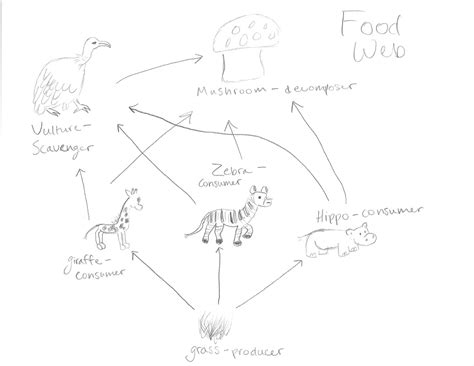 Food
Web
Mushroom - decomposer
Vulture -
Scavenger
Zebra -
consumer
Hippo - consumer
giraffe -
consumer
grass - producer